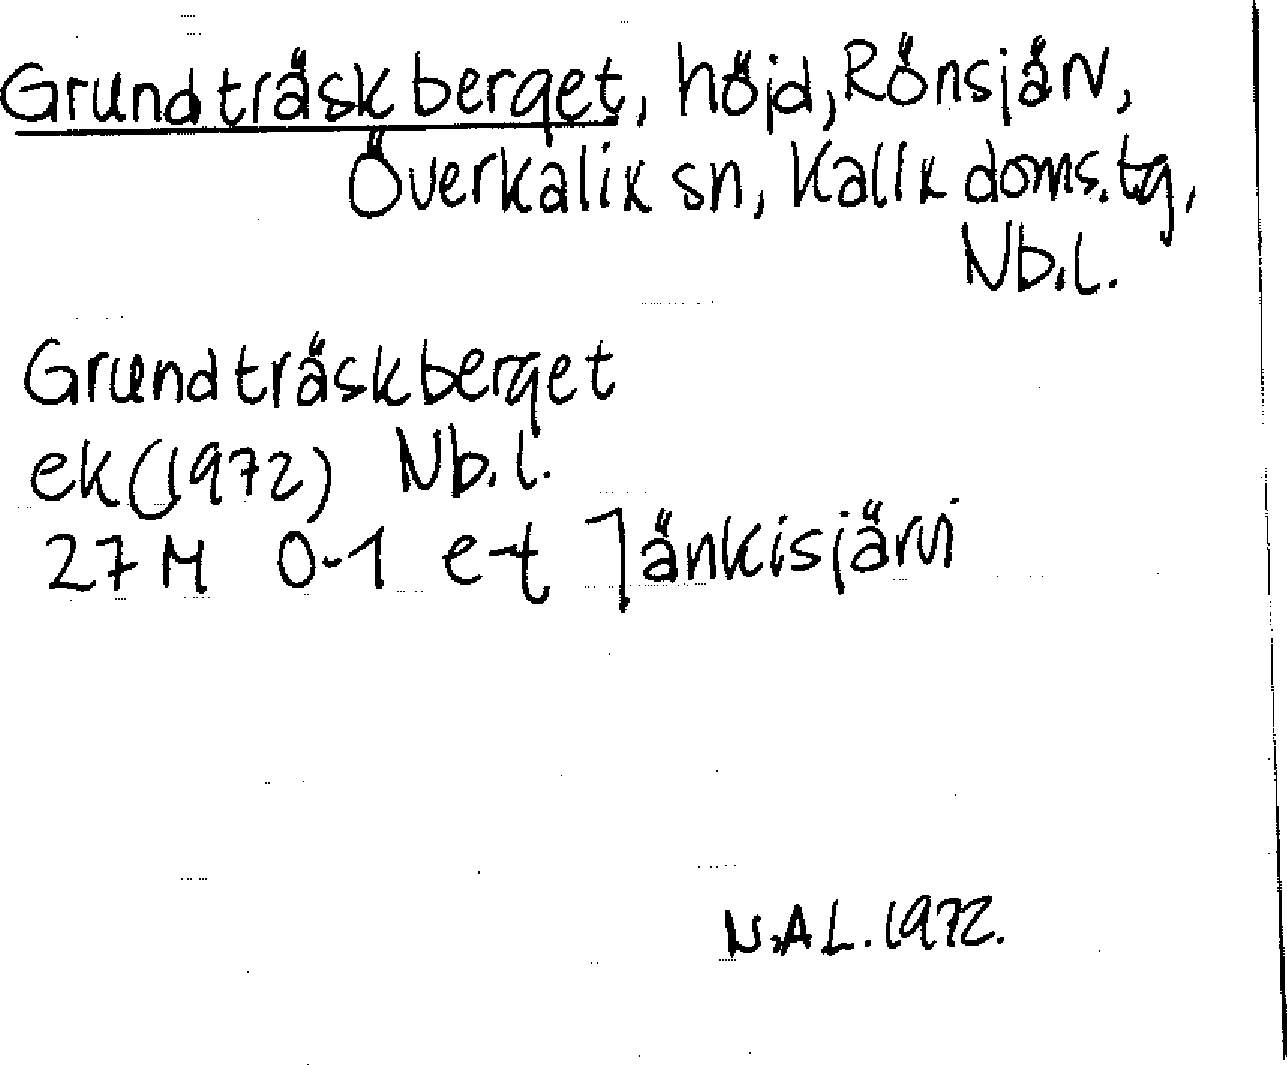 Grundträskberget, höjd, Rönsjärv,
Överkalix sn, Kalix doms.tg,
Nb.l.
Grundträskberget
ek (1972) Nb.l.
27M 0-1 e-f Jänkisjärvi
N.A.L. 1972.